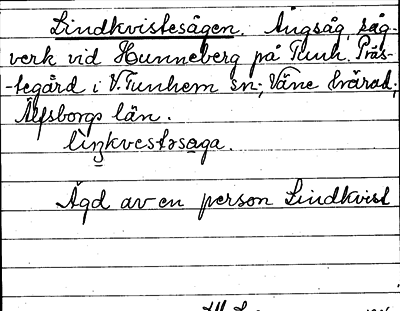 Lindkvistesågen. Ångsåg, såg-
verk vid Hunneberg på Tunh. Präs-
-tegård i V. Tunhem sn; Väne härad;
Älfsborgs län.
liŋkvestəsaga.
Ägd av en person Lindkvist